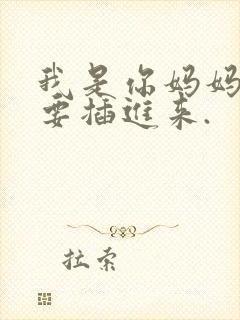 我是你妈妈
要插进来.
拉索